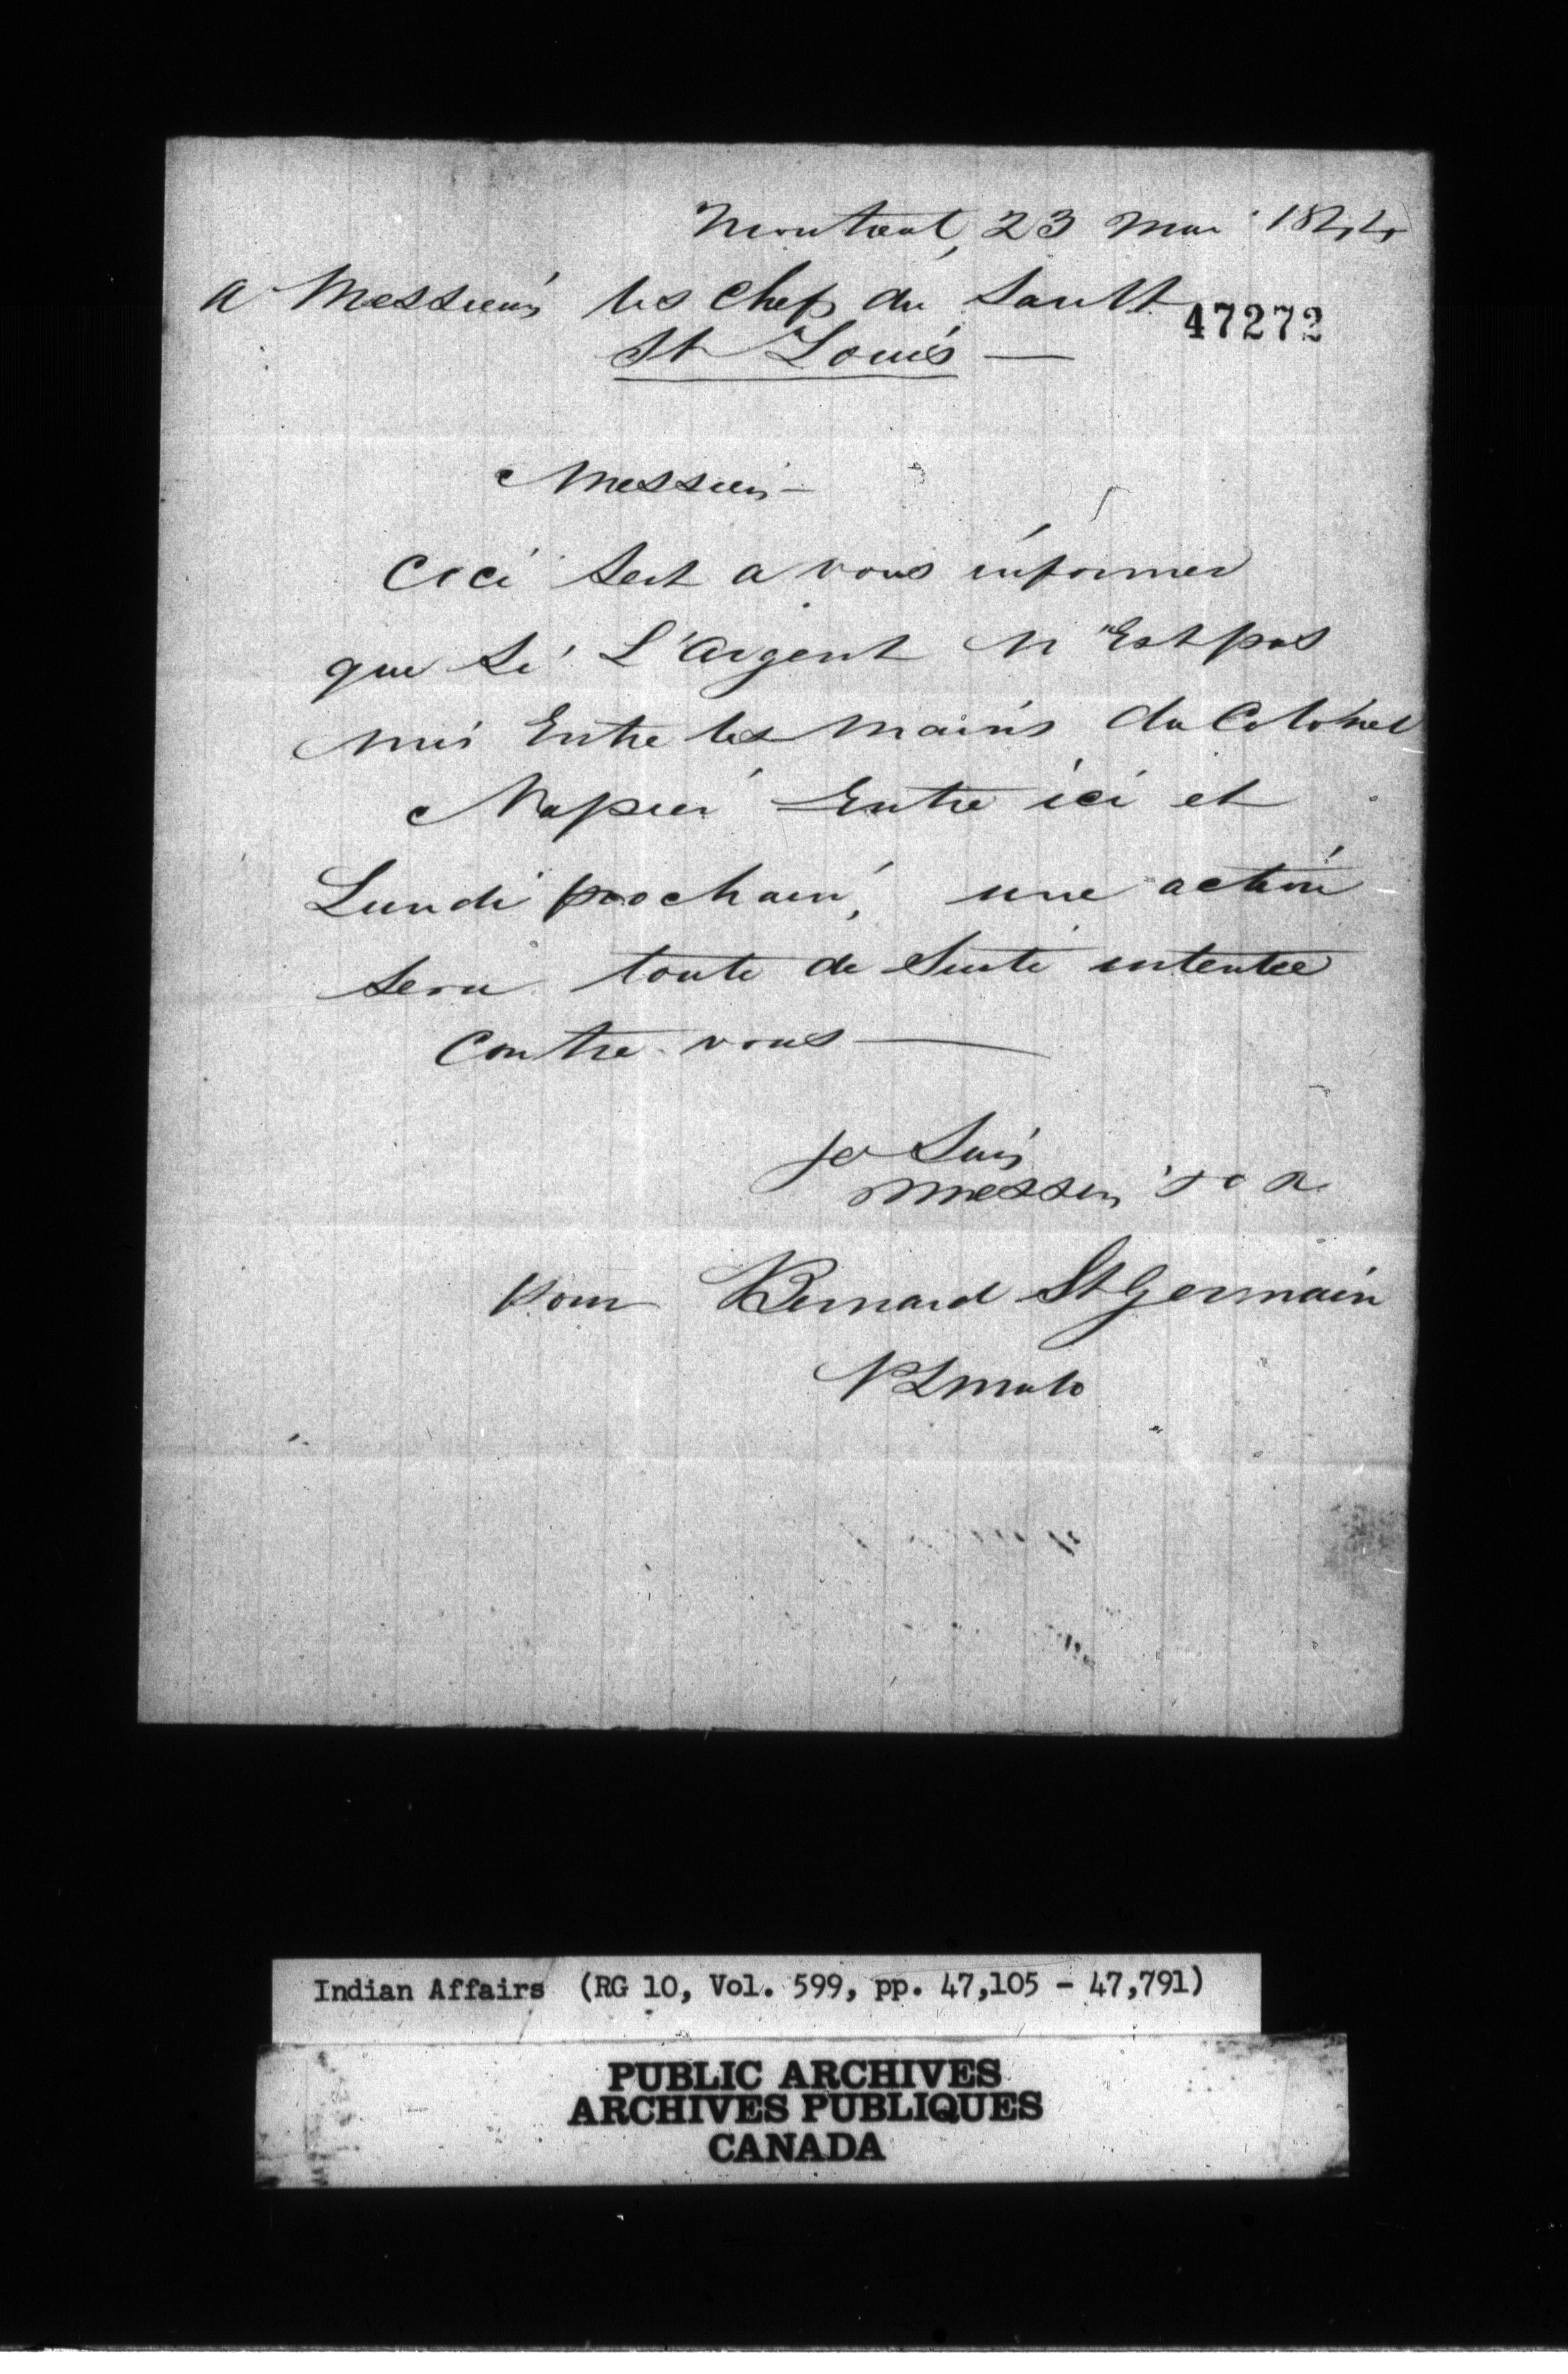 Montreal, 23 Mai 1844
A Messieurs les Chefs du Sault
47272
St Louis —
Messieurs —
Ceci sert a vous informer
que si L'Argent N'Est pas
mis Entre les mains du Colonel
Napier Entre ici et
Lundi prochain, une action
sera toute de suite intentée
contre vous —
Je suis
Messrs
Pour Bernard St Germain
Indian Affairs (RG 10, Vol. 599, pp. 47,105 - 47,791)
PUBLIC ARCHIVES
ARCHIVES PUBLIQUES
CANADA